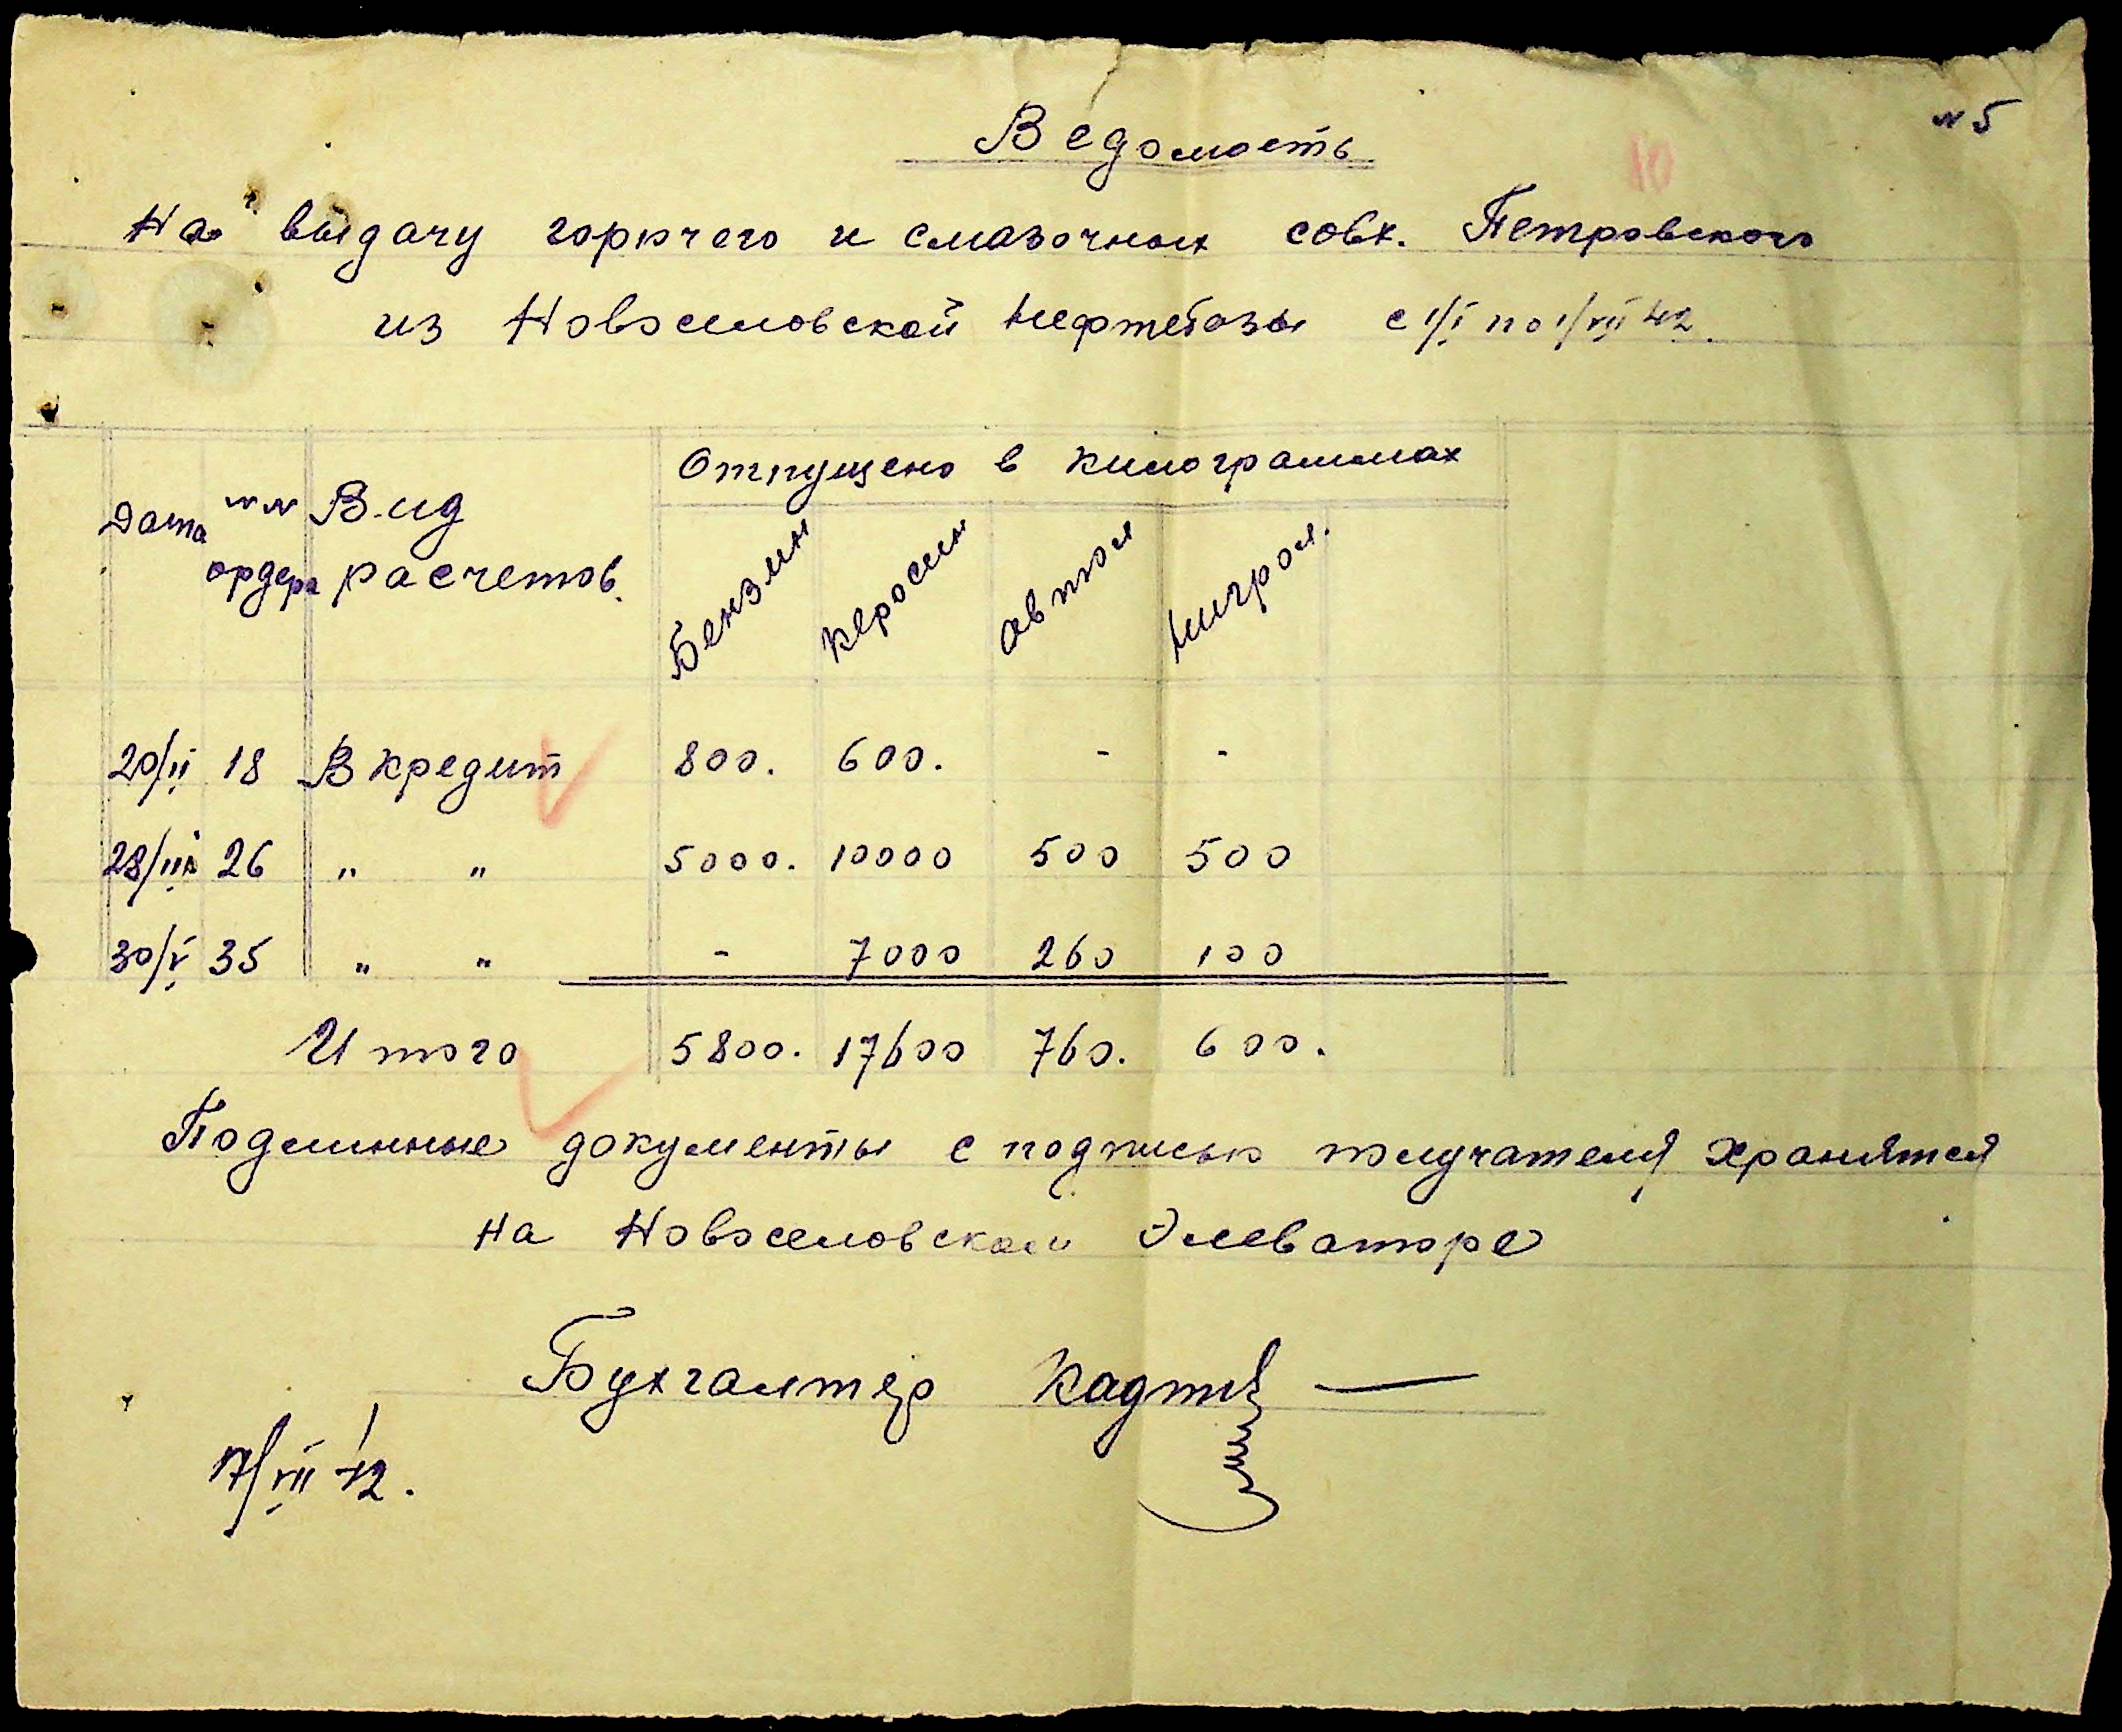 N 5
10
Ведомость
На выдачу горючего и смазочных совх. Петровского
из Новоселовской Нефтебазы с 1/I по 1/VII 42.
Дата
NN ордера
Вид расчетов.
Отпущено в килограммах
Бензин Керосин автол нигрол.
20/II 18 В кредит 800. 600. - -
28/III 26 " " 5000. 10000 500 500
30/V 35 " " - 7000 260 100
Итого 5800. 17600 760. 600.
Подлинные документы с подписью получателя хранятся
на Новоселовском Элеваторе
Бухгалтер
17/VII 42.